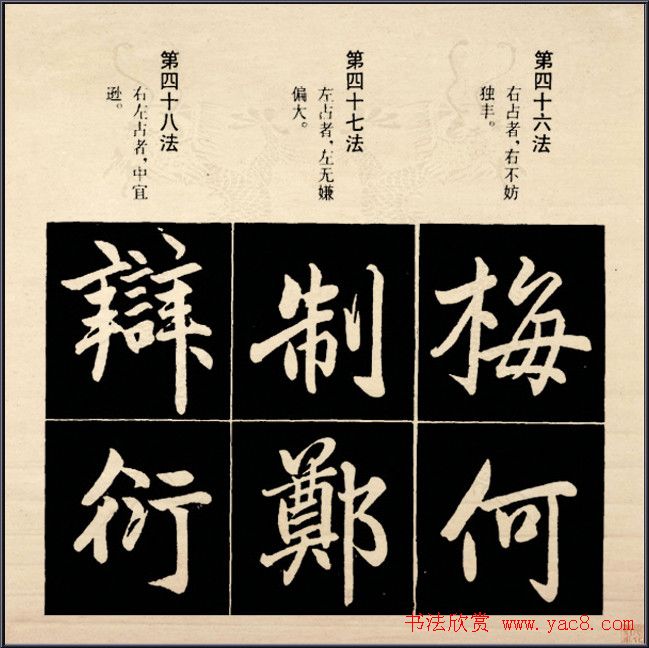 第四十六法
右占者，右不妨
独丰。
第四十七法
左占者，左无嫌
偏大。
第四十八法
右左占者，中宜
逊。
梅
何
制
鄭
辯
衍
书法欣赏 www.yac8.com